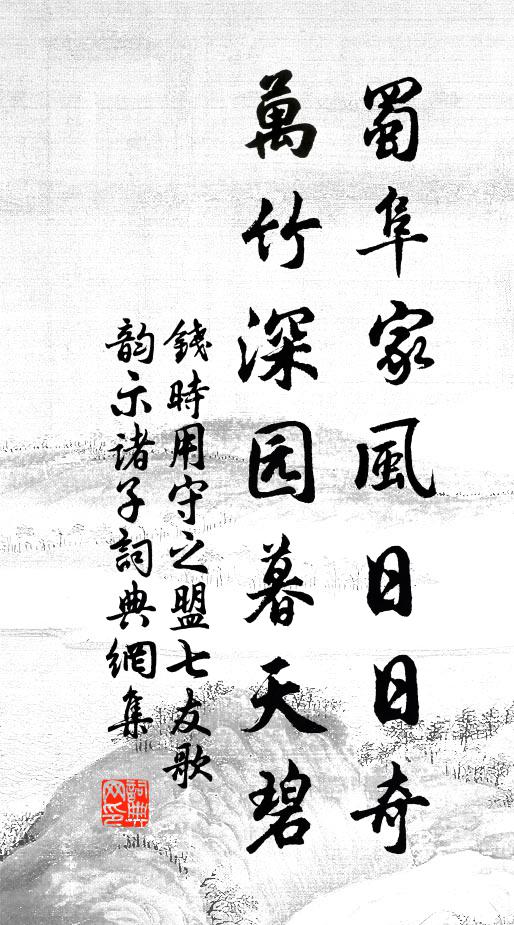 蜀阜家風日日奇
萬竹深园暮天碧
錢時用守之盟七友歌
韵示诸子詞典網集
詞典网印